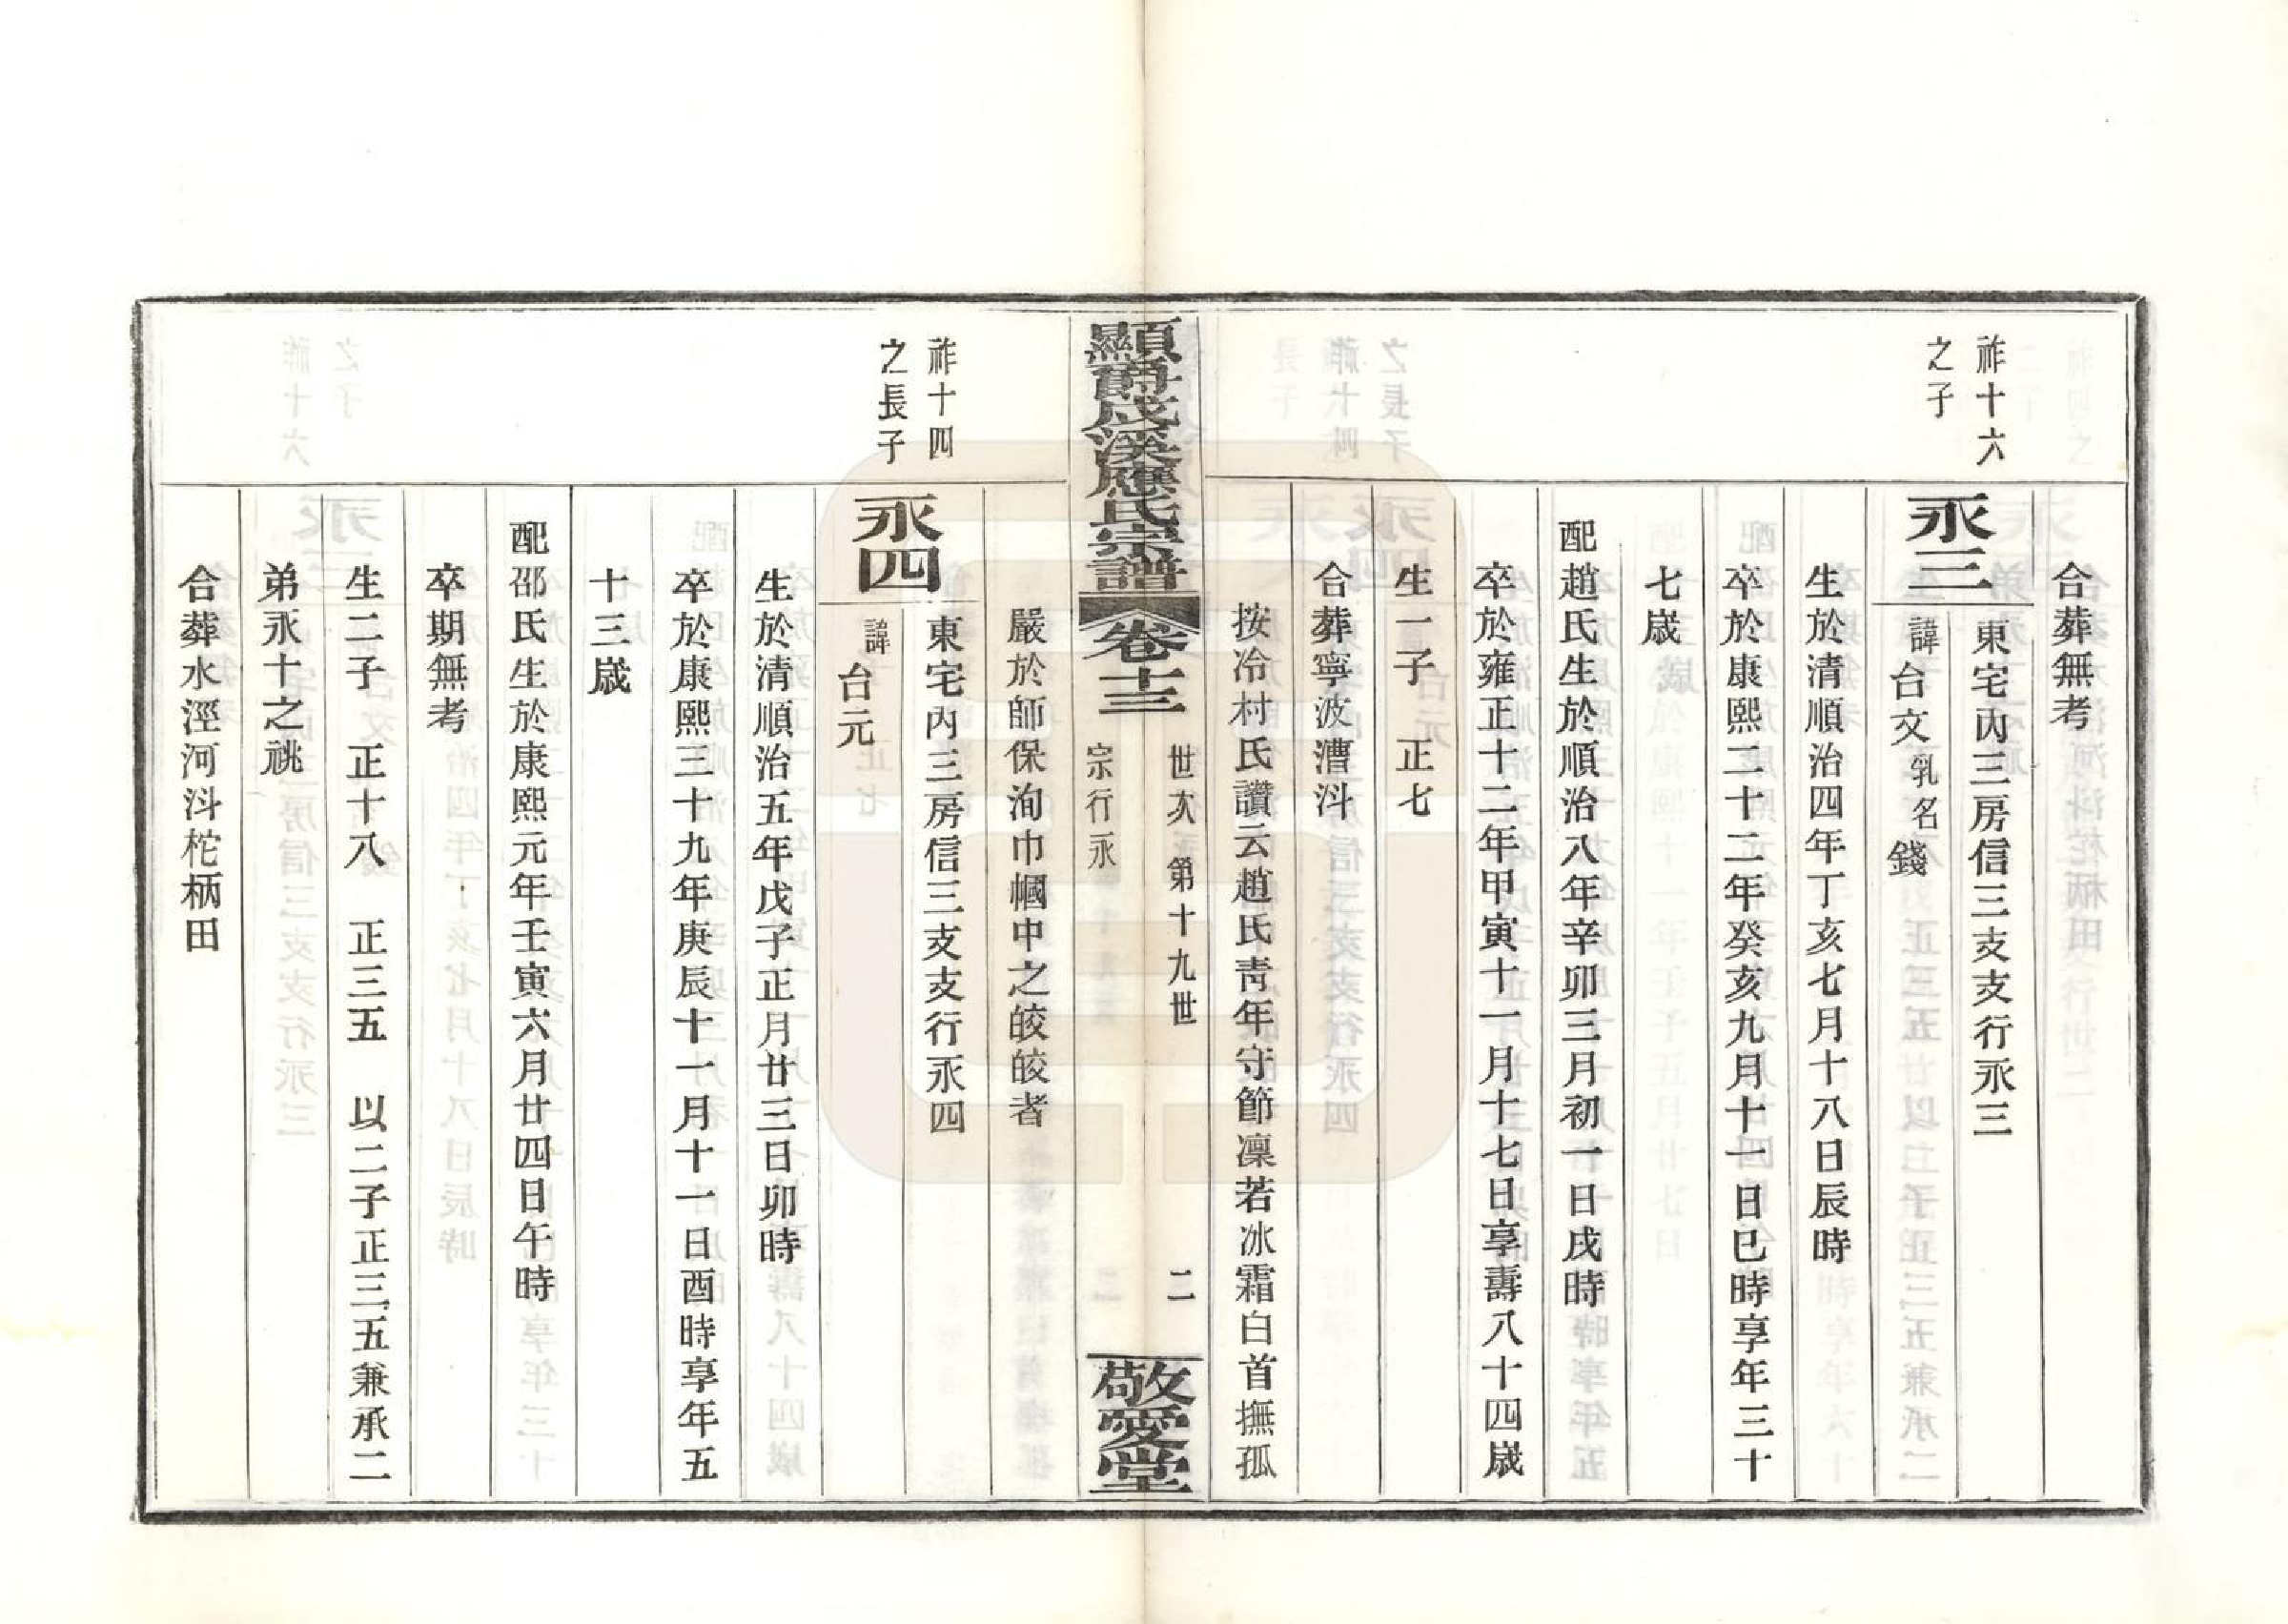 合葬無考
祚十六
之子
永三
東宅內三房信三支支行永三
諱台文乳名錢
生於清順治四年丁亥七月十八日辰時
卒於康熙二十二年癸亥九月十一日巳時享年三十
七歲
配趙氏生於順治八年辛卯三月初一日戌時
卒於雍正十二年甲寅十一月十七日享壽八十四歲
生一子 正七
合葬寧波漕汌
按冷村氏讚云趙氏靑年守節凜若冰霜白首撫孤
顯爵戍溪應氏宗譜 卷十三
世次 第十九世 二
宗行永
敬愛堂
嚴於師保洵巾幗中之皎皎者
祚十四
之長子
永四
東宅內三房信三支支行永四
諱台元
生於清順治五年戊子正月廿三日卯時
卒於康熙三十九年庚辰十一月十一日酉時享年五
十三歲
配邵氏生於康熙元年壬寅六月廿四日午時
卒期無考
生二子 正十八 正三五 以二子正三五兼承二
弟永十之祧
合葬水溼河汌柁柄田